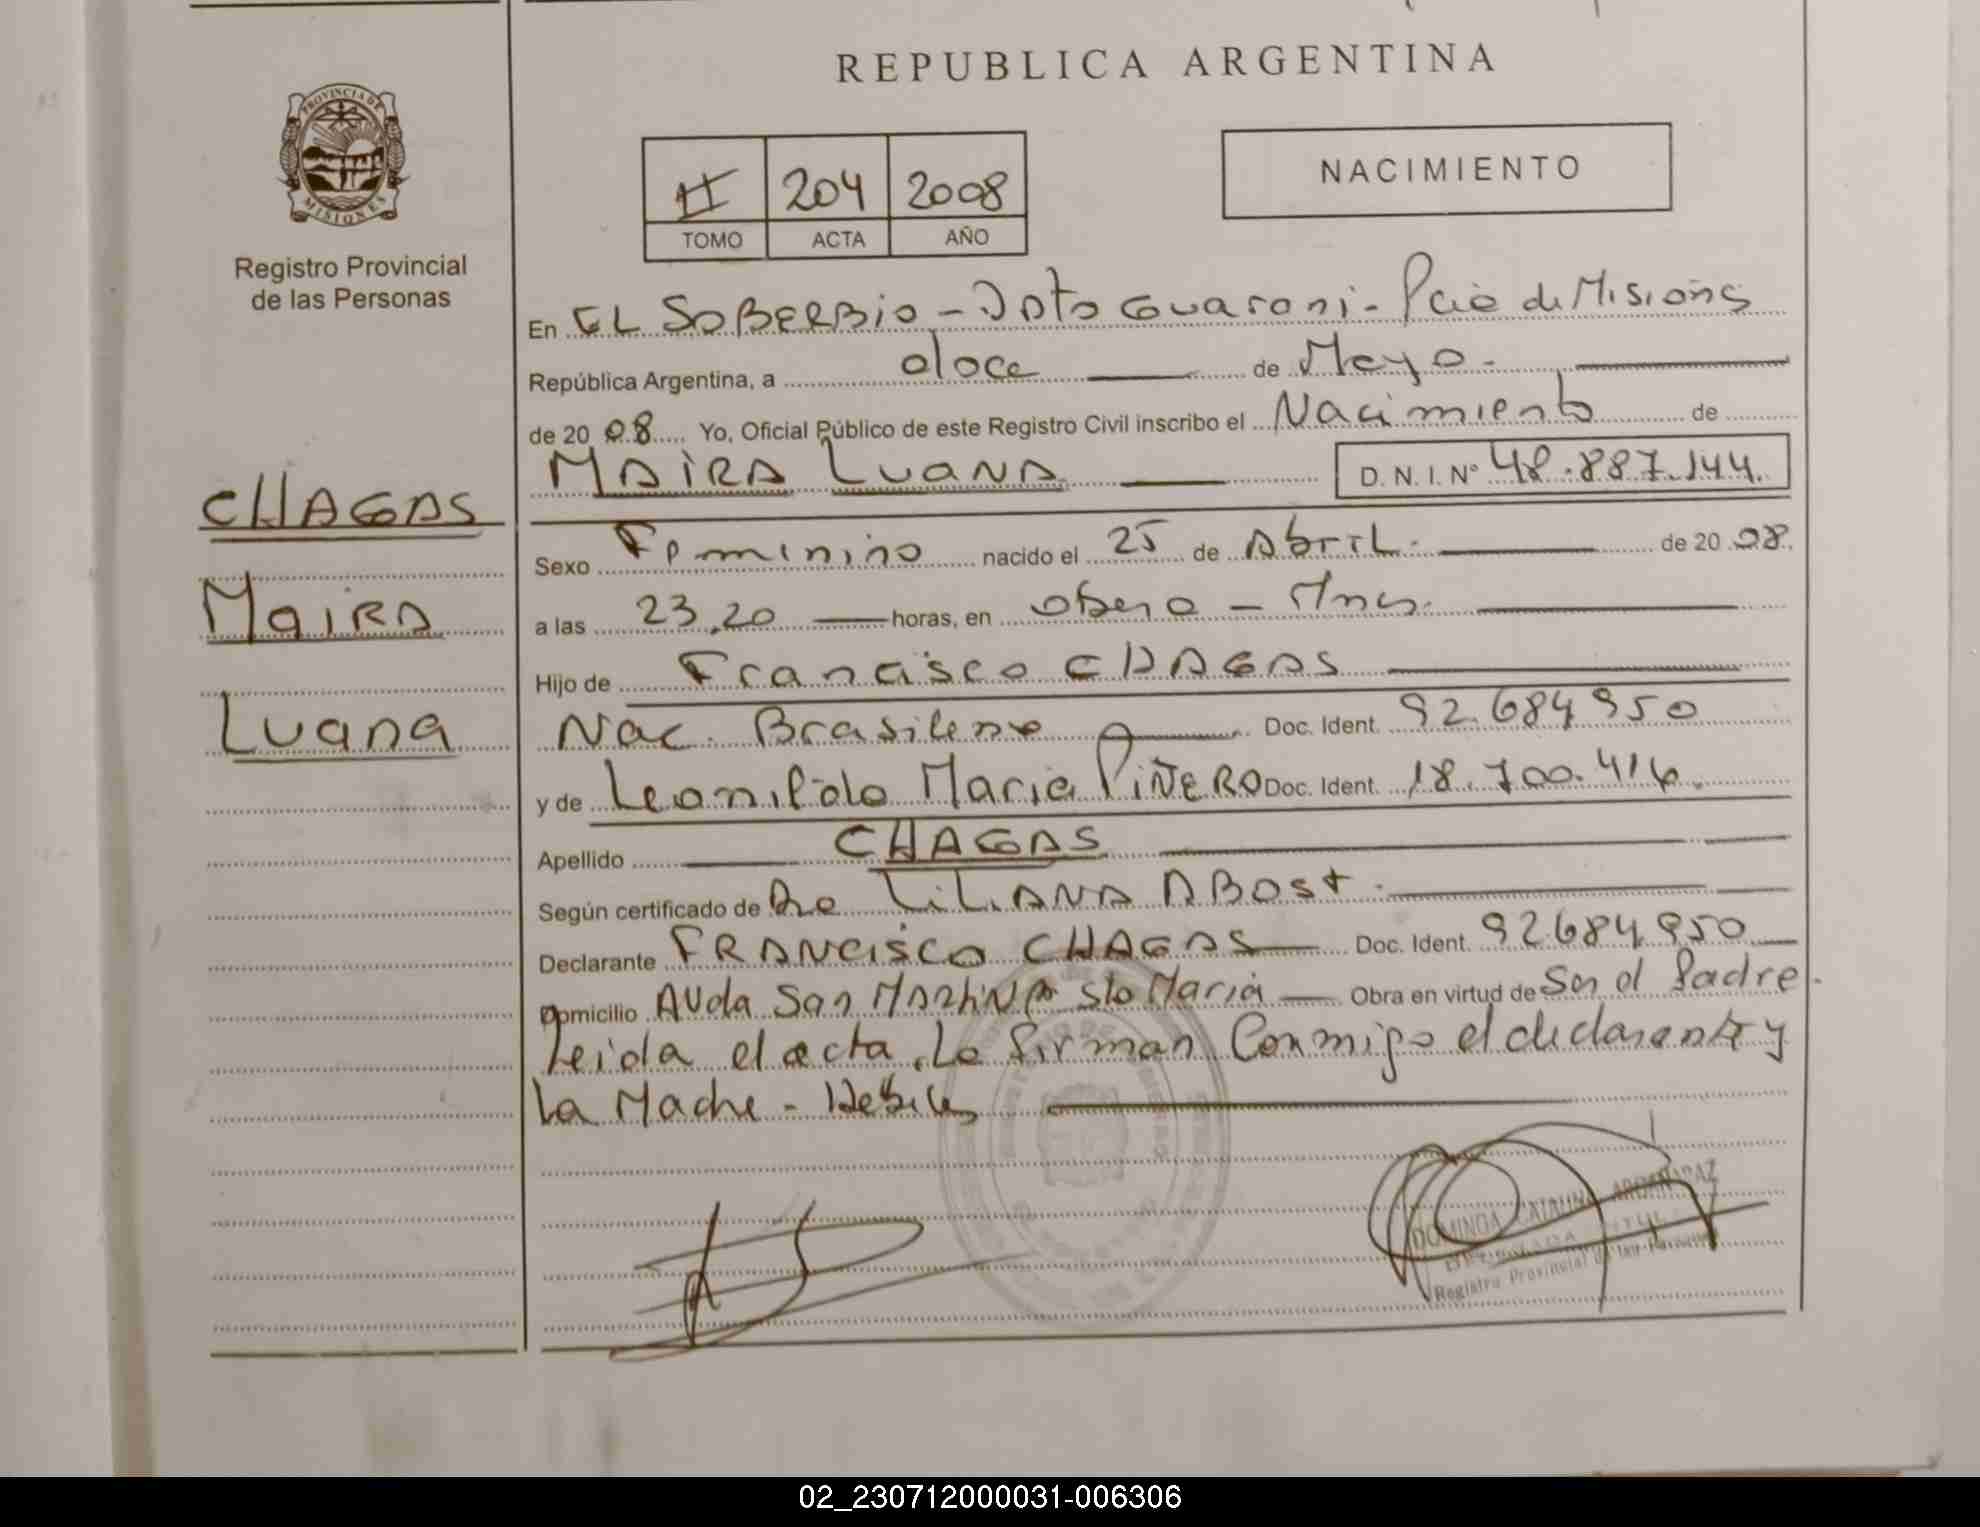 REPUBLICA ARGENTINA
PROVINCIA DE
MISIONES
Registro Provincial
de las Personas
II 204 2008
TOMO ACTA AÑO
NACIMIENTO
En EL SOBERBIO - Dpto Guarani - Pcia de Misiones
República Argentina, a doce de Mayo.
de 20 08 Yo, Oficial Público de este Registro Civil inscribo el Nacimiento de
MAIRA LUANA D. N. I. N° 48.887.144.
CHAGAS
Maira
Luana
Sexo Feminino nacido el 25 de Abril. de 20 08.
a las 23,20 horas, en Obera - Mnes.
Hijo de Francisco CHAGAS
Nac. Brasileno Doc. Ident. 92.684.950
y de Leonilda Maria PIÑERO Doc. Ident. 18.700.416.
Apellido CHAGAS
Según certificado de Dra LILIANA ABOST.
Declarante FRANCISCO CHAGAS Doc. Ident. 92684950
Domicilio Avda San Martin Sta Maria Obra en virtud de Ser el Padre.
Leida el acta, La firman Conmigo el declarante y
La Madre -
DOMINGA CATALINA
Registro Provincial de las Personas
02_230712000031-006306